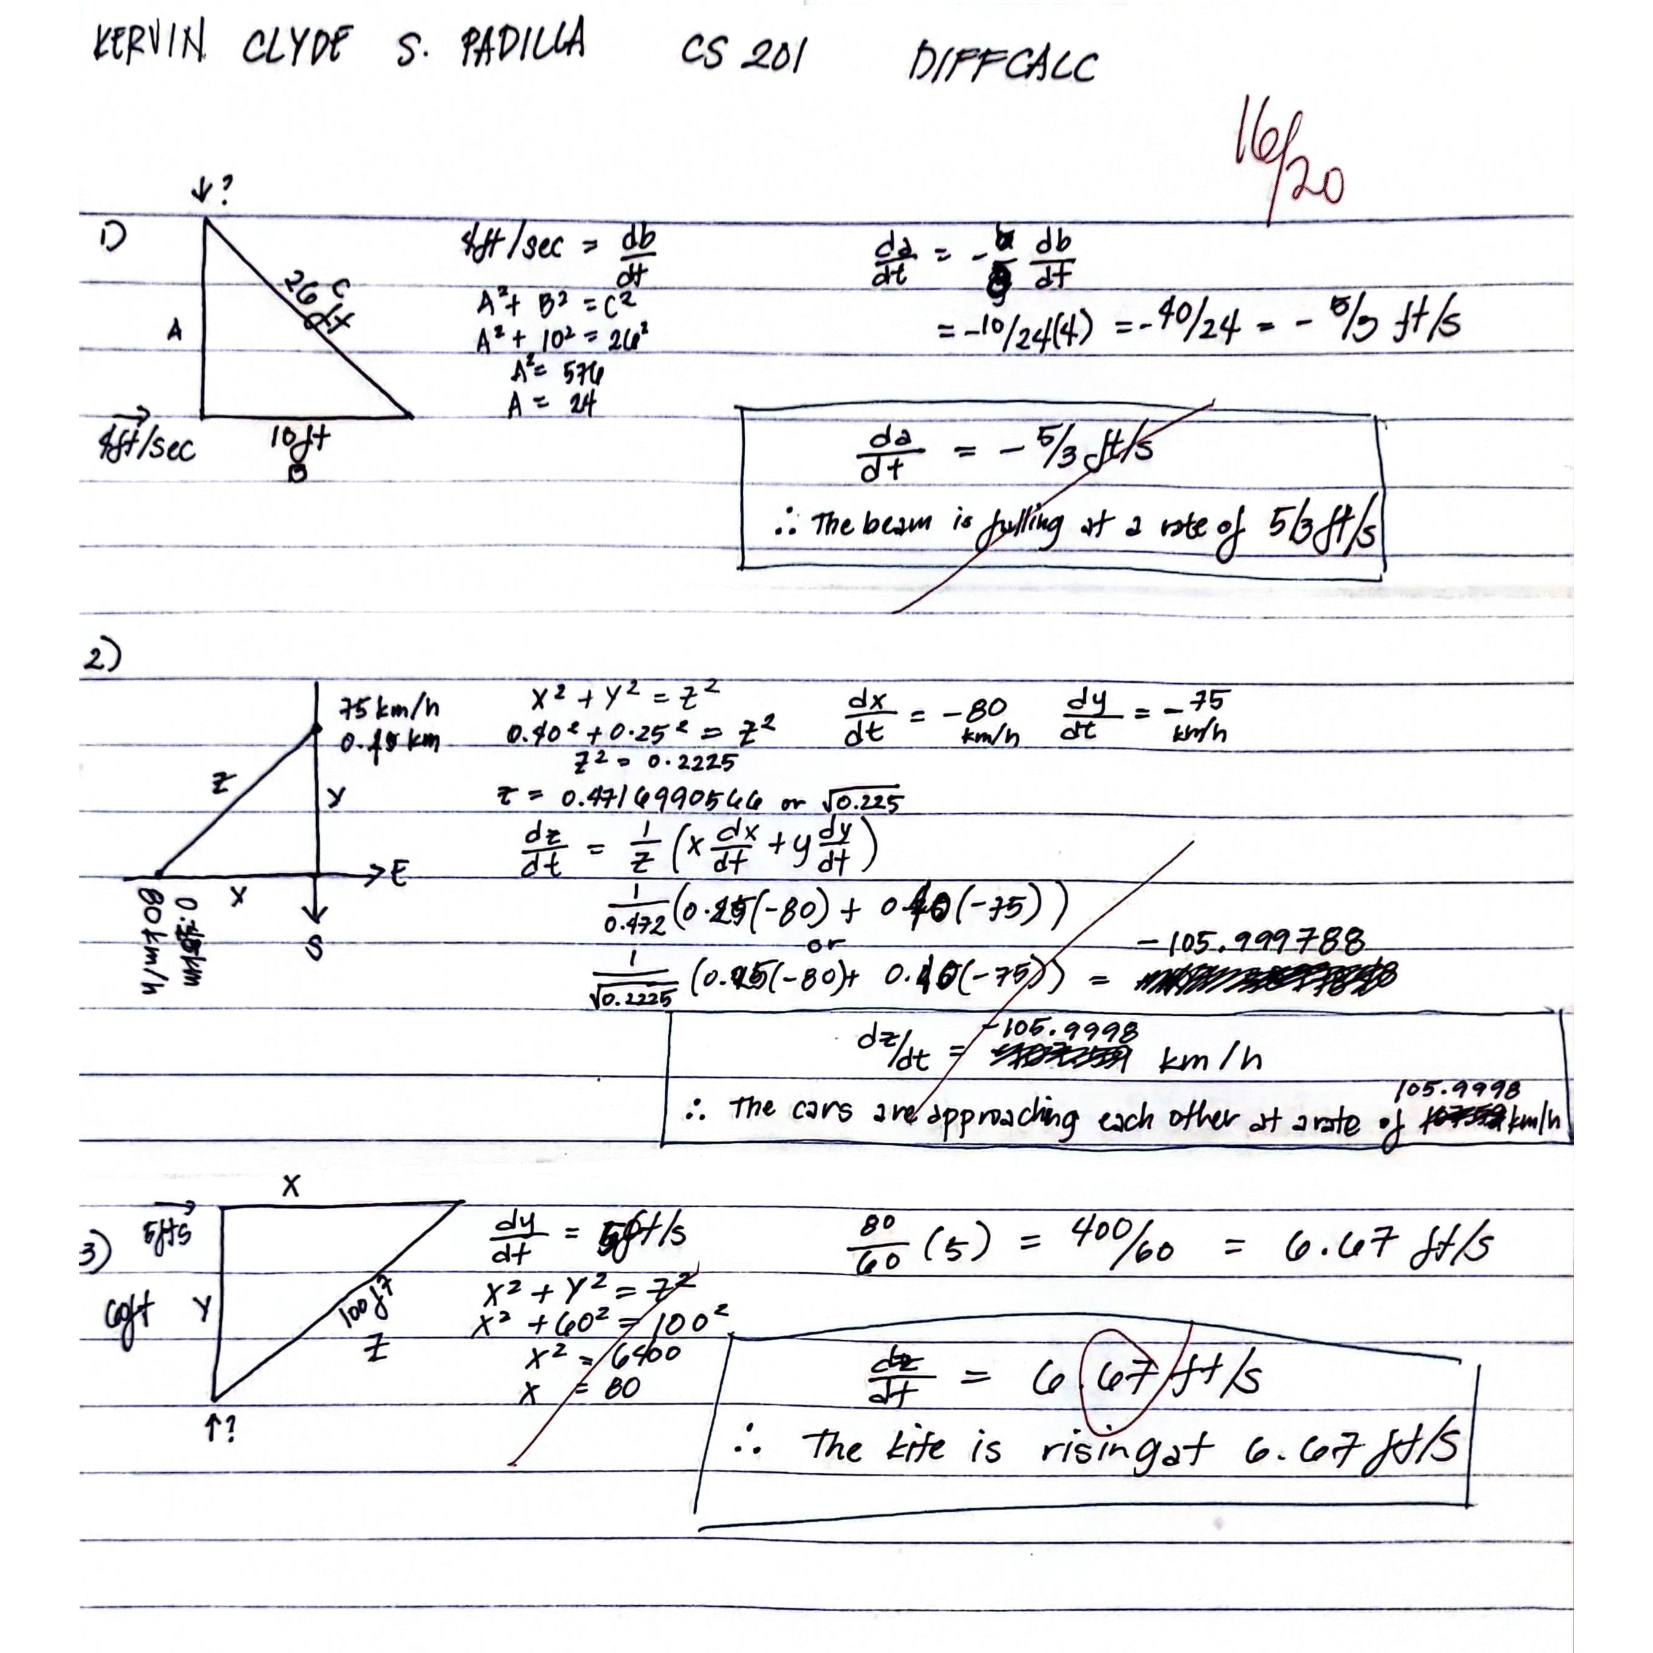 KERVIN CLYDE S. PADILLA CS 201 DIFFCALC
16/20
↓?
1)
26 ft C
A
4ft/sec
10ft
B
4ft/sec = db/dt
A² + B² = C²
A² + 10² = 26²
A² = 576
A = 24
da/dt = - b/ db/dt
= -10/24(4) = -40/24 = - 5/3 ft/s
da/dt = - 5/3 ft/s
∴ The beam is falling at a rate of 5/3 ft/s
2)
75 km/h
km
Z
Y
X
→ E
S
80 km/h
0. km
X² + Y² = Z²
0.40² + 0.25² = Z²
Z² = 0.2225
Z = 0.4716990566 or √0.225
dx/dt = -80 km/h dy/dt = -75 km/h
dz/dt = 1/z (x dx/dt + y dy/dt)
1/0.472 (0.25(-80) + 0.40(-75))
or
1/√0.2225 (0.25(-80) + 0.40(-75)) = -105.999788
dz/dt = -105.9998 km/h
∴ The cars are approaching each other at a rate of 105.9998 km/h
3)
X
5ft/s
60ft Y
100ft
Z
↑?
dy/dt = 5ft/s
X² + Y² = Z²
X² + 60² = 100²
X² = 6400
X = 80
80/60 (5) = 400/60 = 6.67 ft/s
dz/dt = 6.67 ft/s
∴ The kite is rising at 6.67 ft/s